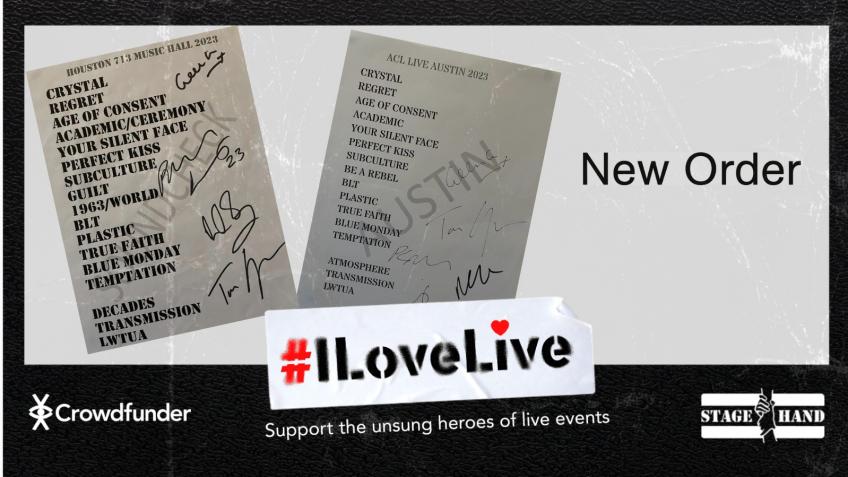 HOUSTON 713 MUSIC HALL 2023
CRYSTAL
REGRET
AGE OF CONSENT
ACADEMIC/CEREMONY
YOUR SILENT FACE
PERFECT KISS
SUBCULTURE
GUILT
1963/WORLD
BLT
PLASTIC
TRUE FAITH
BLUE MONDAY
TEMPTATION
DECADES
TRANSMISSION
LWTUA
23
ACL LIVE AUSTIN 2023
CRYSTAL
REGRET
AGE OF CONSENT
ACADEMIC
YOUR SILENT FACE
PERFECT KISS
SUBCULTURE
BE A REBEL
BLT
PLASTIC
TRUE FAITH
BLUE MONDAY
TEMPTATION
ATMOSPHERE
TRANSMISSION
LWTUA
AUSTIN
New Order
#ILoveLive
Crowdfunder
Support the unsung heroes of live events
STAGE HAND